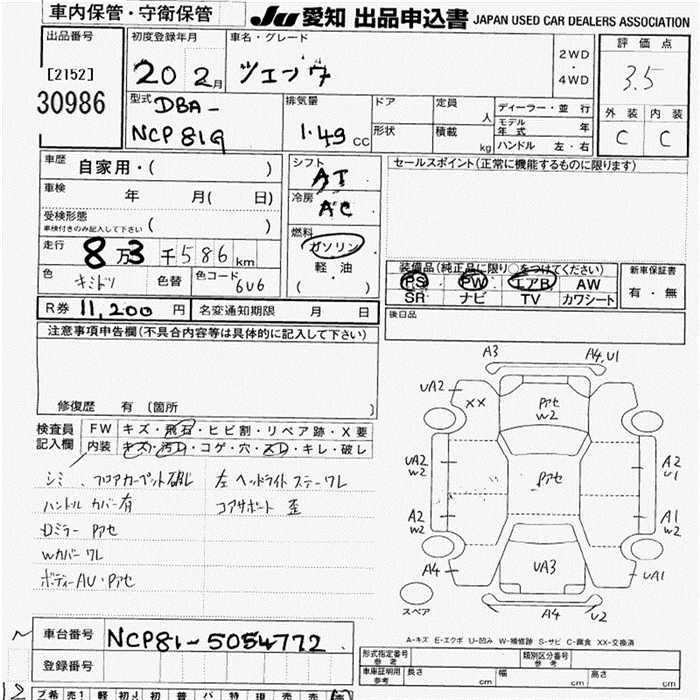 車内保管・守衛保管
JU 愛知 出品申込書 JAPAN USED CAR DEALERS ASSOCIATION
出品番号
[2152]
30986
初度登録年月
20 2月
車名・グレード
2WD
・
4WD
評価点
3.5
外装 内装
C C
型式
DBA-
NCP81G
排気量
1.49 CC
ドア
形状
定員 人
積載 kg
ディーラー・並行
モデル年式 年
ハンドル 左・右
車歴
自家用・( )
車検 年 月( 日)
受検形態
車検付きのみ記入して下さい ( )
走行
8万3千586km
色 キミドリ 色替 色コード 6V6
シフト
AT
冷房
AC
燃料
ガソリン
軽・油
( )
セールスポイント(正常に機能するものに限ります)
装備品(純正品に限り○をつけてください)
PS PW エアB AW
SR ナビ TV カワシート
新車保証書
有・無
後日品
R券 11,200円 名変通知期限 月 日
注意事項申告欄(不具合内容等は具体的に記入して下さい)
修復歴 有 〔箇所 〕
検査員記入欄
FW キズ・飛石・ヒビ割・リペア跡・X要
内装 キズ・汚れ・コゲ・穴・スレ・キレ・破レ
シミ、フロアカーペット破レ
ハンドルカバー有
Dミラー Pアセ
Wカバー ワレ
ボディーAU・Pアセ
左ヘッドライトステーワレ
コアサポート歪
A3 A4,U1
UA2
XX
Pアセ
W2
UA2
W2
Pアセ
A2
U1
A2
W2
A1
W2
A4
UA3
UA1
スペア
A4 U2
A-キズ E-エクボ U-凹み W-補修跡 S-サビ C-腐食 XX-交換済
車台番号 NCP81-5054772
登録番号
形式指定番号
参考
類別区分番号
車庫証明用
参考
長さ cm 幅 cm 高さ cm
12